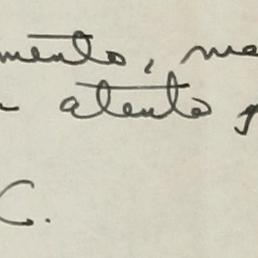 mento, me
atento
C.